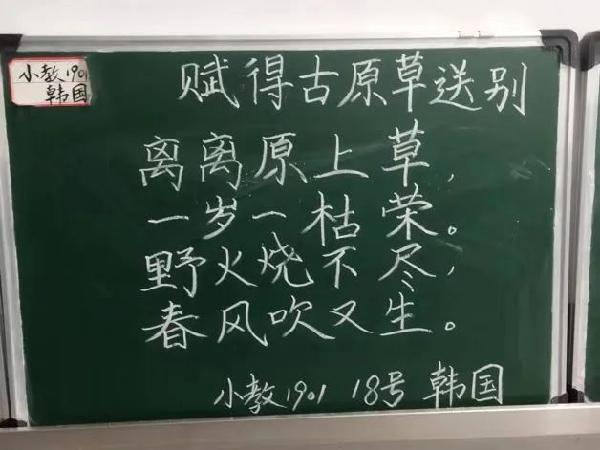 小教1901
韩国
赋得古原草送别
离离原上草，
一岁一枯荣。
野火烧不尽，
春风吹又生。
小教1901 18号 韩国